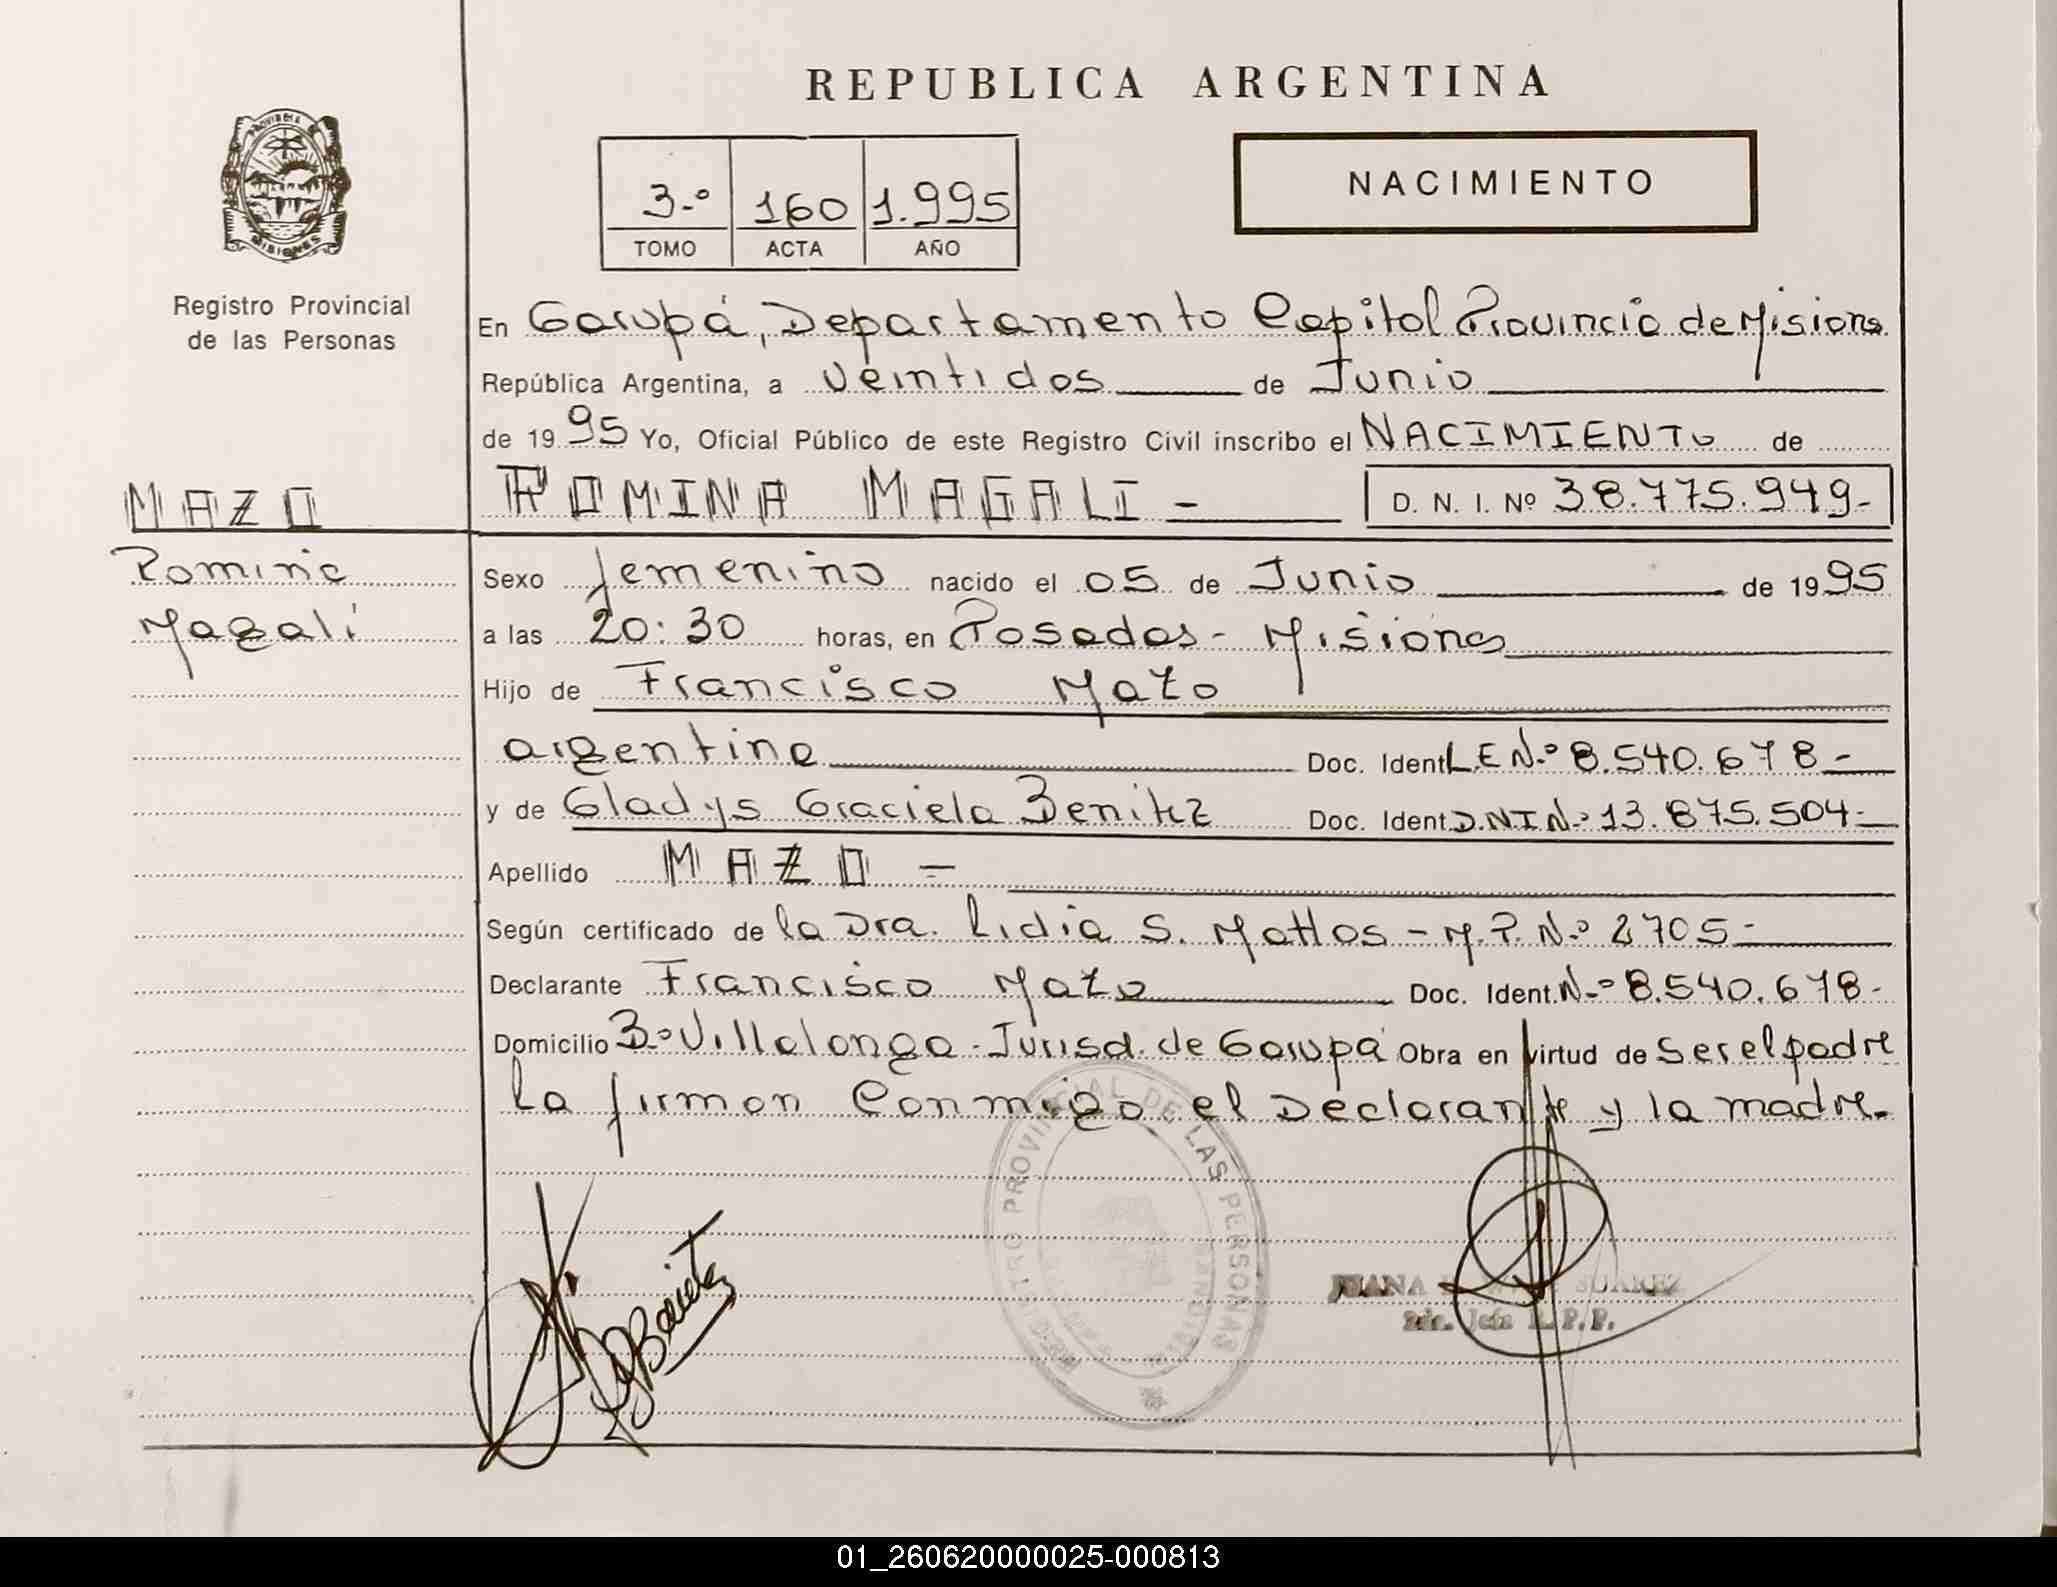 REPUBLICA ARGENTINA
PROVINCIA
MISIONES
Registro Provincial
de las Personas
3.º 160 1.995
TOMO ACTA AÑO
NACIMIENTO
En Garupá, Departamento Capital Provincia de Misiones
República Argentina, a veintidos de Junio
de 1995 Yo, Oficial Público de este Registro Civil inscribo el NACIMIENTO de
MAZO
ROMINA MAGALI - D. N. I. Nº 38.775.949-
Romina
Magali
Sexo femenino nacido el 05 de Junio de 1995
a las 20:30 horas, en Posadas - Misiones
Hijo de Francisco Mazo
argentino Doc. Ident L.E N.º 8.540.678-
y de Gladys Graciela Benitez Doc. Ident. D.N.I N.º 13.875.504-
Apellido MAZO =
Según certificado de la Dra. Lidia S. Mattos - M.P. N.º 2705-
Declarante Francisco Mazo Doc. Ident. N.º 8.540.678-
Domicilio B.º Villalonga - Jurisd. de Garupá Obra en virtud de ser el padre
La firman conmigo el Declarante y la madre.
REGISTRO PROVINCIAL DE LAS PERSONAS
GBenitez
JUANA SUAREZ
Jefa R.P.P.
01_260620000025-000813